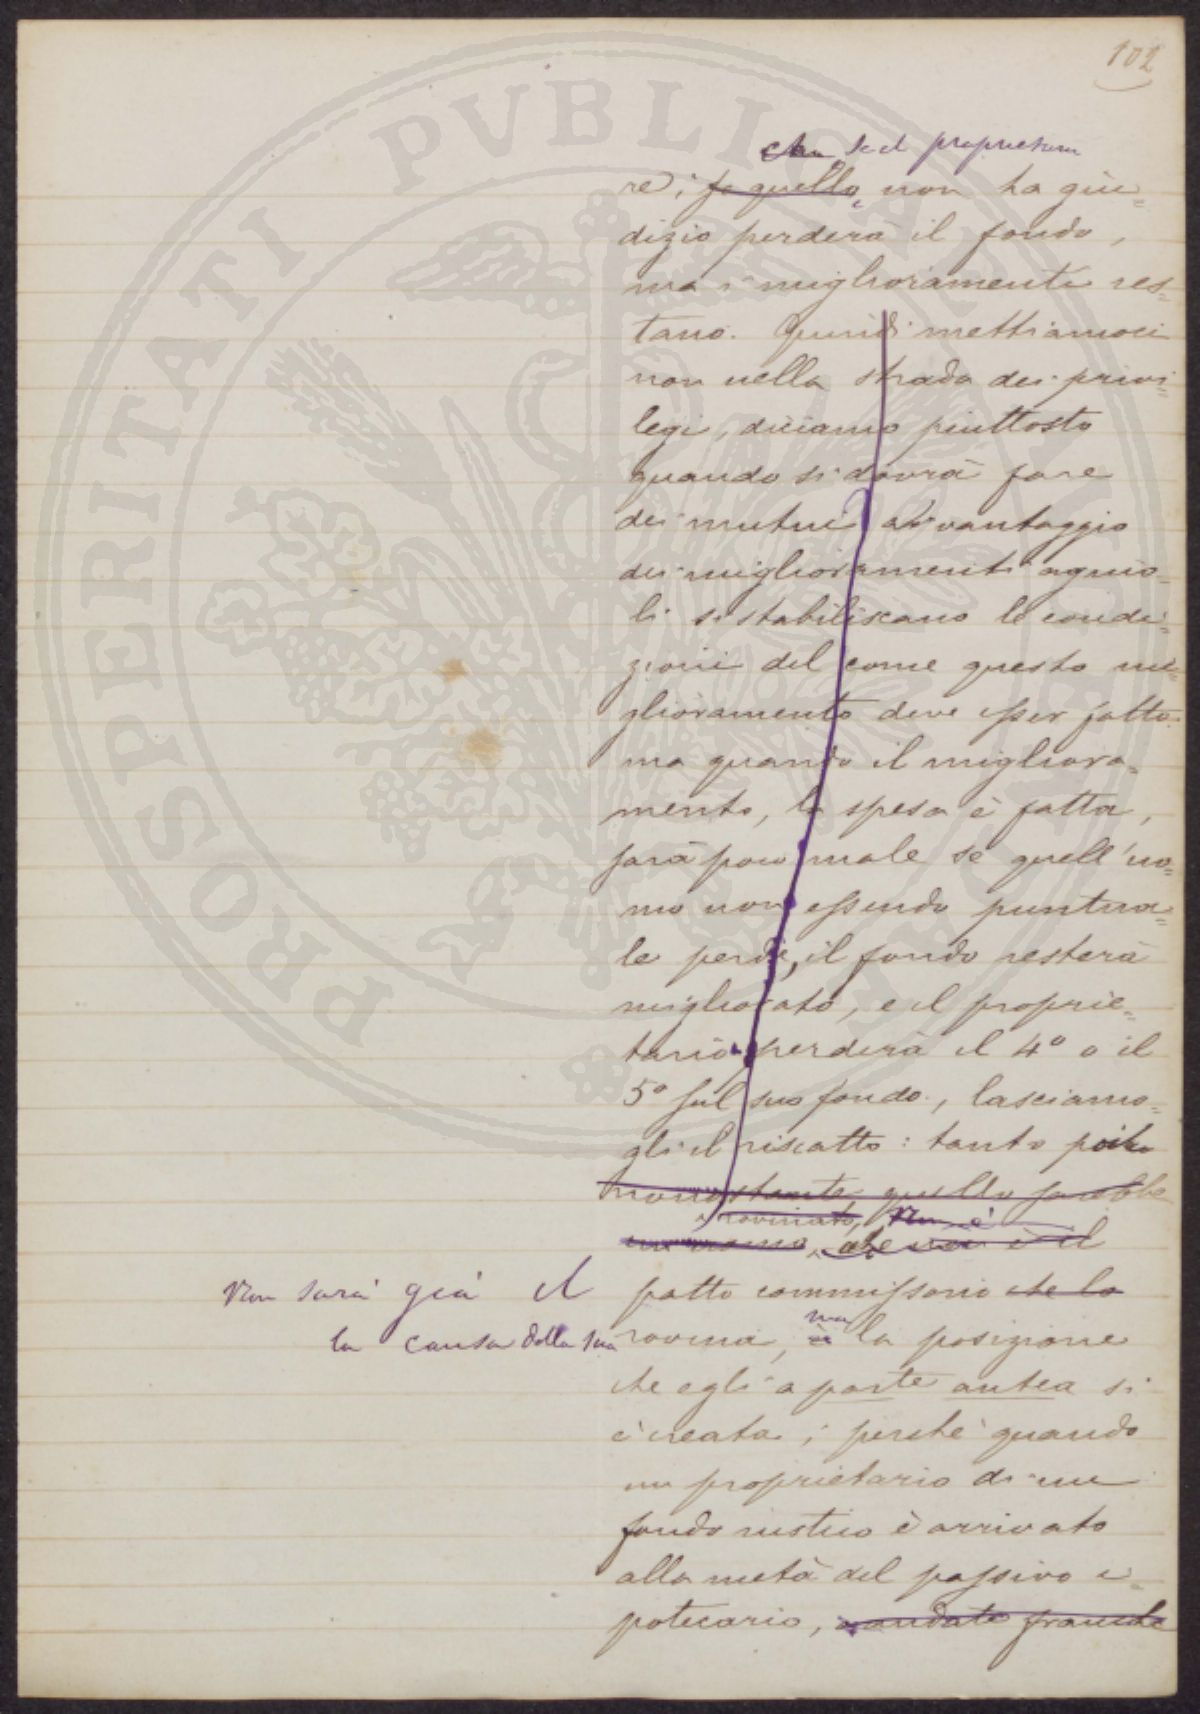 102
che se il proprietario
re; se quello, non ha giu=
dizio perderà il fondo,
ma i miglioramenti res=
tano. Quindi mettiamoci
non nella strada dei privi=
legi, diciamo piuttosto
quando si dovrà fare
dei mutui a vantaggio
dei miglioramenti agrico=
li si stabiliscano le condi=
zioni del come questo mi=
glioramento deve esser fatto
ma quando il migliora=
mento, la spesa è fatta,
sarà poco male se quell'uo=
mo non essendo puntua=
le perde, il fondo resterà
migliorato, e il proprie=
tario perderà il 4º o il
5º sul suo fondo, lasciamo=
gli il riscatto: tanto
nonostante quello sarebbe
rovinato, Non è
un uomo, che non è il
Non sarà già il patto commissorio che lo
la causa della sua rovina, è ma la posizione
che egli a parte antea si
è creata; perchè quando
un proprietario di un
fondo rustico è arrivato
alla metà del passivo i=
potecario, mandate francate
PROSPERITATI PUBLICAE